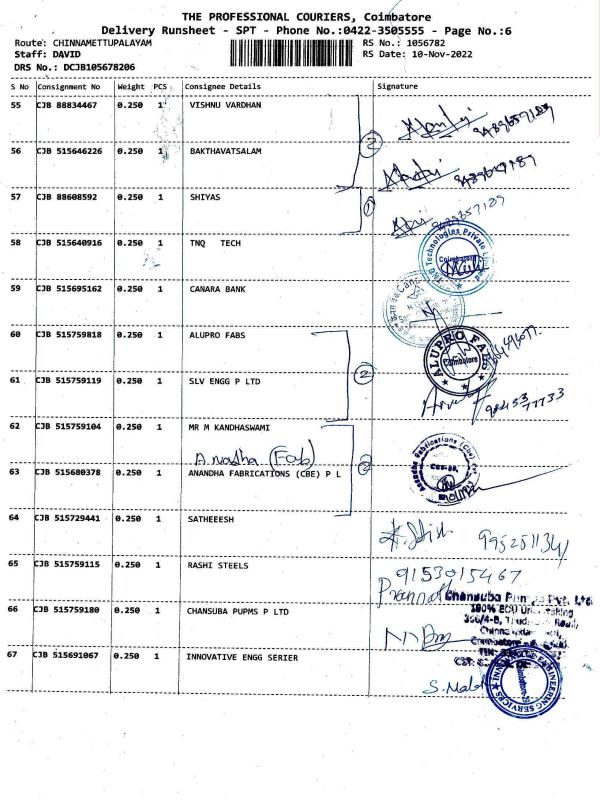 THE PROFESSIONAL COURIERS, Coimbatore
Delivery Runsheet - SPT - Phone No.:0422-3505555 - Page No.:6
Route: CHINNAMETTUPALAYAM RS No.: 1056782
Staff: DAVID RS Date: 10-Nov-2022
DRS No.: DCJB105678206
S No Consignment No Weight PCS Consignee Details Signature
55 CJB 88834467 0.250 1 VISHNU VARDHAN
2
56 CJB 515646226 0.250 1 BAKTHAVATSALAM
57 CJB 88608592 0.250 1 SHIYAS
1
58 CJB 515640916 0.250 1 TNQ TECH
Technologies Private Limited
Coimbatore
59 CJB 515695162 0.250 1 CANARA BANK
60 CJB 515759818 0.250 1 ALUPRO FABS
ALUPRO FABS
Coimbatore
2
61 CJB 515759119 0.250 1 SLV ENGG P LTD
98453 77733
62 CJB 515759104 0.250 1 MR M KANDHASWAMI
(Fab)
2
63 CJB 515680378 0.250 1 ANANDHA FABRICATIONS (CBE) P L
64 CJB 515729441 0.250 1 SATHEEESH
9952511341
65 CJB 515759115 0.250 1 RASHI STEELS
9153015467
66 CJB 515759180 0.250 1 CHANSUBA PUPMS P LTD
Chansuba Pvt. Ltd
100% EOU
67 CJB 515691067 0.250 1 INNOVATIVE ENGG SERIER
ENGINEERING SERVICES